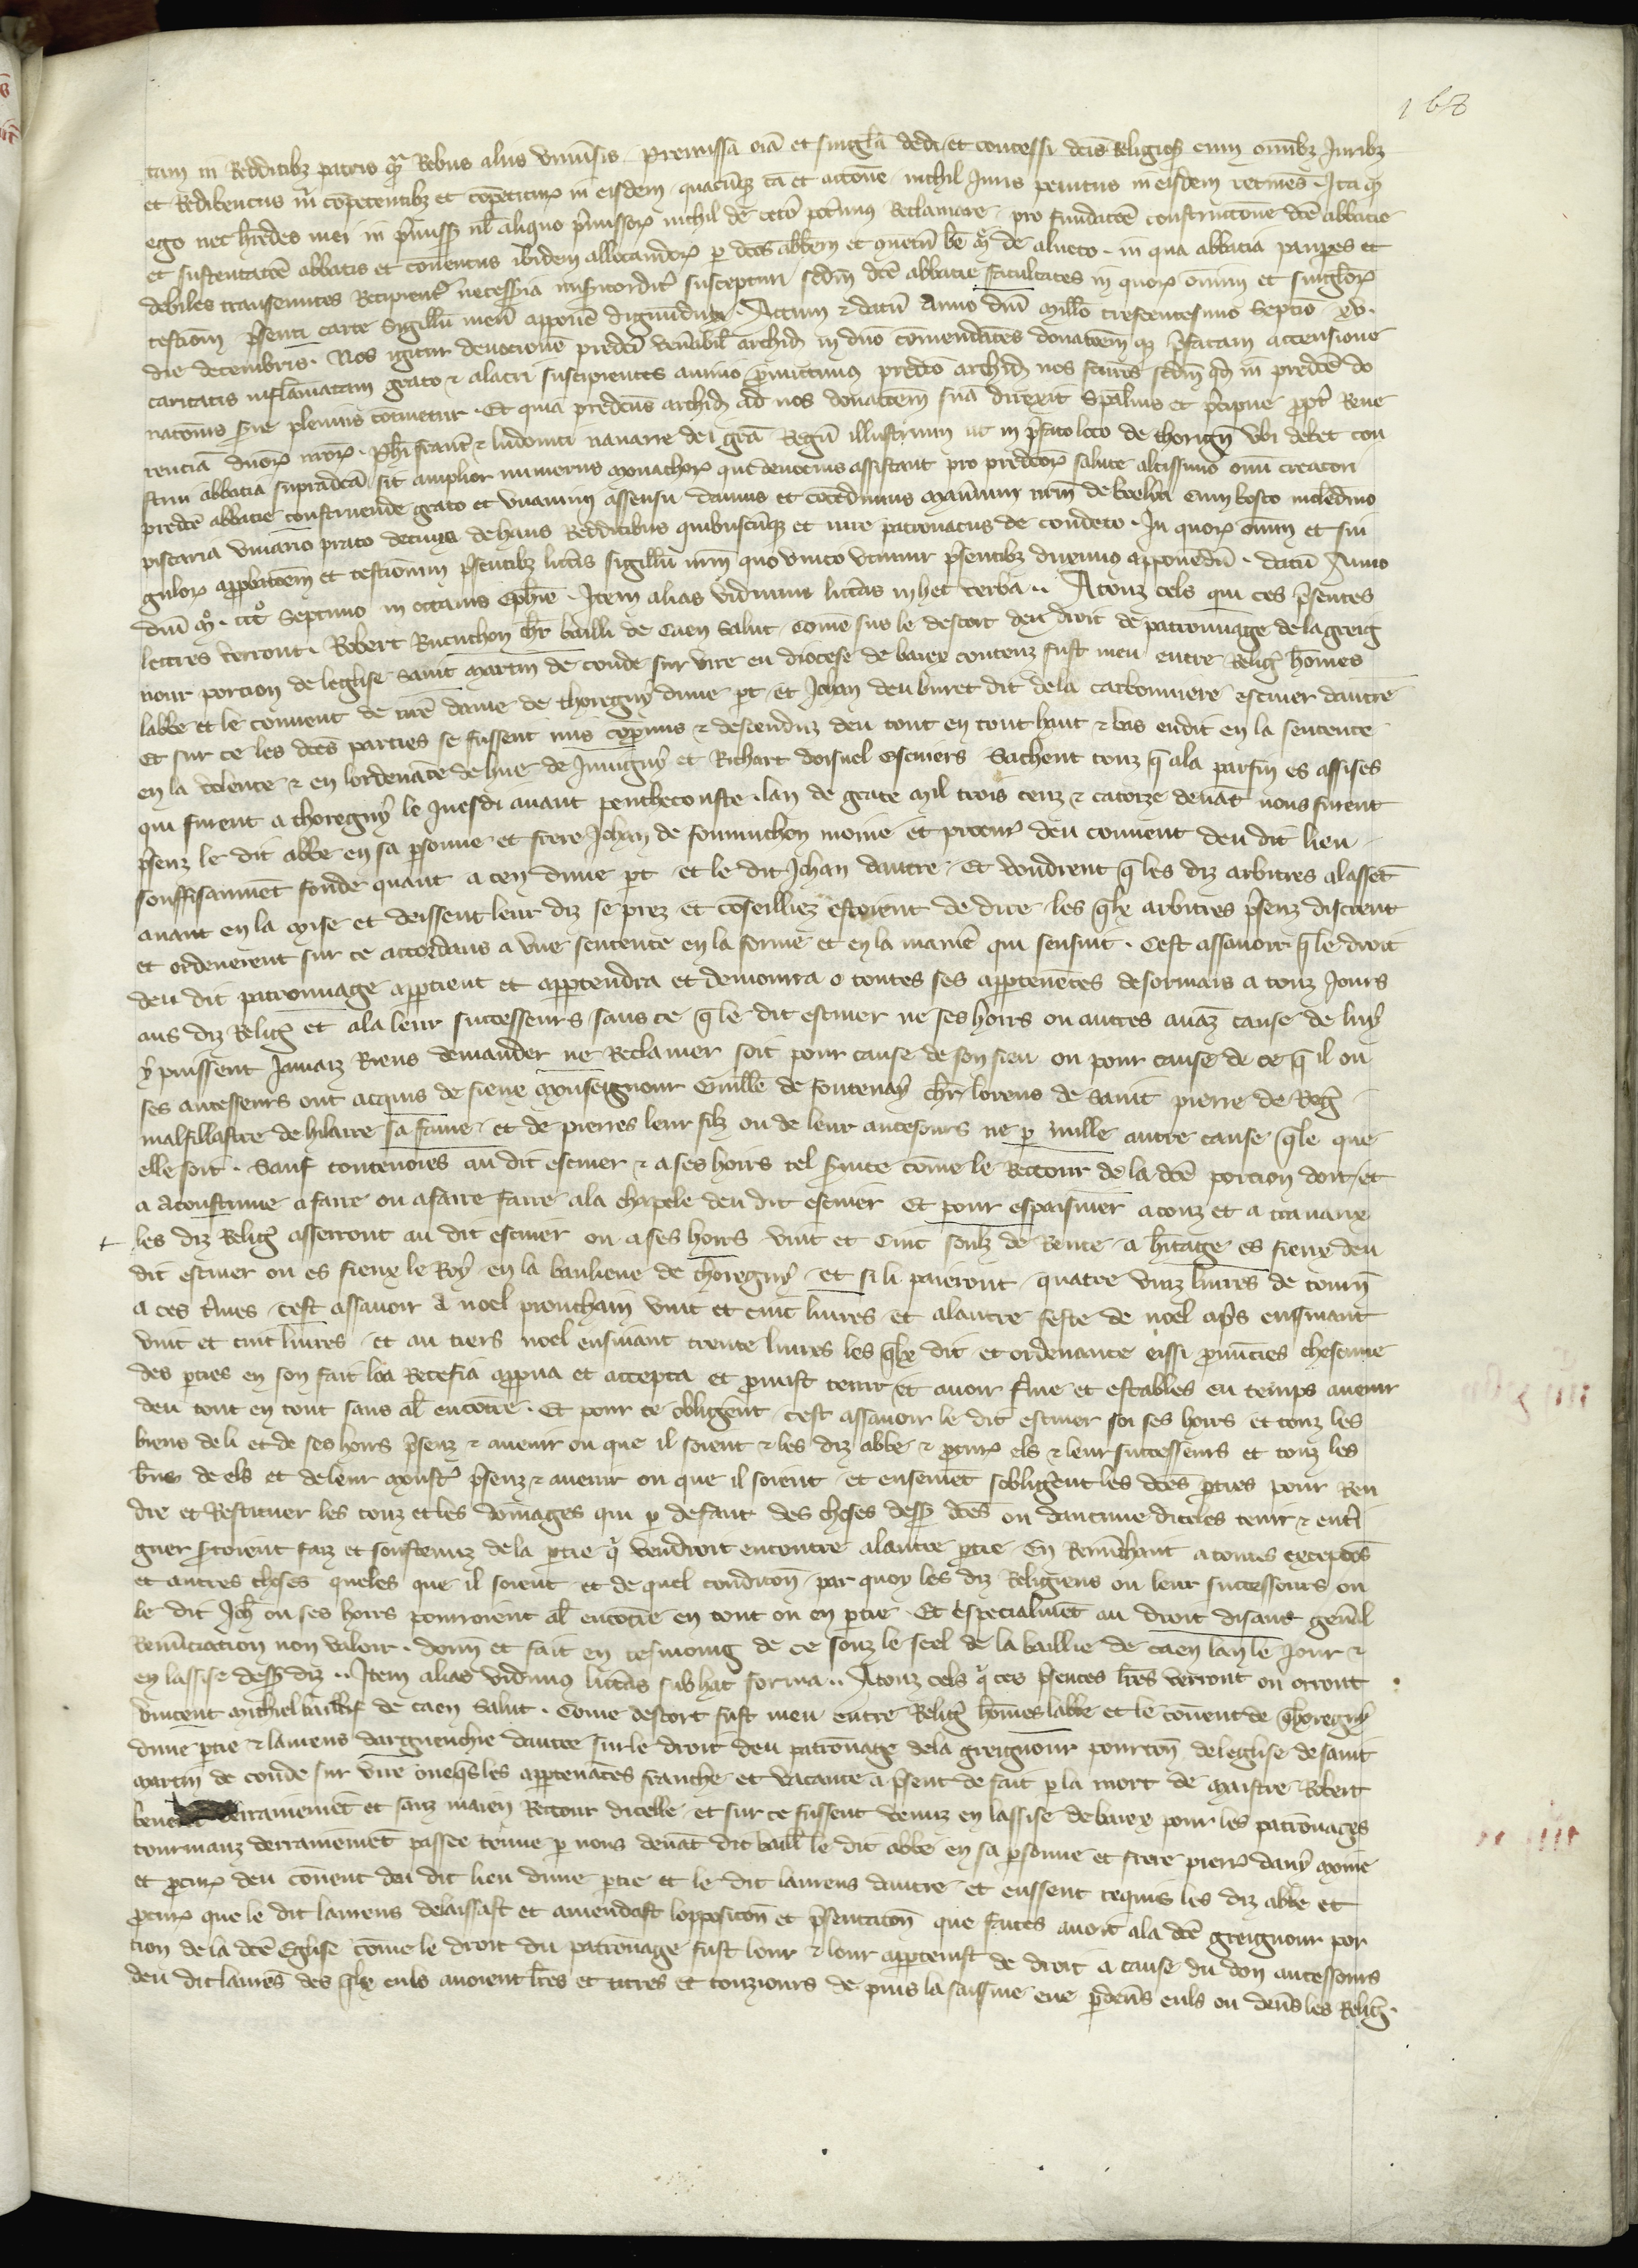 168
tam in Redditibz patris qr Rebus aliis universis. premissa oia et singla dedi et concessi dcis Religios cum omibz Juribz
et Redibencus m competentibz et competituris in eisdem quacuqz ca et actone nichil Juris penitus in eisdem retines. Ita qz
ego nec hredes mei in pmissis vl aliquo pmissor nichil de cetero potimus Reclamare. pro fundatoe constructione dce abbacie
et sustentatoe abbatis et conventus ibidem allocandor p dcos abbem et coventu be m de alneto. in qua abbatia paupes et
debiles transeuntes Recipient necessia misicordit suscepturi scdm dce abbacie facultates in quor omnium et singlor
testiom psenti carte sigillu meu apponē dignu duxi. Actum et datu Anno dni millo trescentesimo septio xv.
die decembris. Nos igitur devocione predci venabil archid in dno comendates donatoem qz pfatam accensione
caritatis inflamatam grato et alacri suscipientes animo pmittimus predco archid nos scdm qd in predce do
natonis pleuius cotinetur. Et quia predcus archid ad nos donatoem sua direxit spalius et pcipue ppt Reue
rencia dnor nror. Phi franc et ludouici nauarre dei gra Regu illustrium ut in pfato loco de thorign vbi debet con
strui abbatia supradca sit amplior numerus monachor qui deuocius assistant pro predcor salute altissimo oim creatori
predce abbacie construende grato et vnanimi assensu damus et cocedimus manium nrm de boelon cum bosco molendino
piscaria viuario prato decima de haus Redditibus quibuscuqz et iure patronatus de condeto. In quor oium et sin
gulor approbatoem et testionium psentibz litas sigillu nrm quo vnico vtimur psentibz duximus apponedu. datu Anno
dni mo. ccco. septimo in octauis Ephie. Item alias vidimus litas in hec verba.. Atouz cels qui ces psentes
lettres verront. Robert Rucuchon chr bailli de Caen Salut. Come sus le descort deu droit de patronnage de la greig
nour porcion de leglise saint martin de conde sur vire en diocese de baiex contenz fust meu entre Relig homes
labbe et le conuent de nre dame de thoregny dune pt et Johan deu buret dit de la carbonniere escuier dautre
Et sur ce les dces parties se fussent mis copmis et descenduz deu tout en tout haut et bas en dit en la sentence
en la volente et en lordenace de hue de Juuigny et Richart doisnel escuiers Sachent touz q ala parfin es assises
qui furent a thoregny le Juesdi auant penthecouste. lan de grace mil trois cenz et catorze deuat nous furent
psenz le dit abbe en sa psonne et frere Johan de soumuchon moine et procur deu conuent deu dit lieu
souffisaumet fonde quant a cen dune pt et le dit Johan dautre. Et voudrent q les diz arbitres alasset
auant en la mise et deissent leur diz se prez et coseilliez estoient de dire les qlx arbitres psenz discrent
et ordenerent sur ce accordans a vne sentence en la forme et en la manie qui sensuit. Cest assauoir q le droit
deu dit patronnage appartient et appartendra et demourra o toutes ses appartenences desormais a touz Jours
aus diz Relig et ala leur successeurs sans ce q le dit escuier ne ses hoirs ou autres auaz cause de luy
y puissent Jamaiz Riens demander ne Reclamer soit pour cause de son fieu ou pour cause de ce q il ou
ses ancesseurs ont acquis de fiene monseignour Guille de fontenay chr lorens de saint pierre de Reg
malfillastre de hilaire sa fame et de pierres leur filz ou de leur ancesours ne p nulle autre cause qle que
elle soit. Sauf toutenoies au dit escuier et a ses hoirs tel seruice come le Rectour de la dce porcion doit et
a acoustume a faire ou a faire faire ala chapele deu dit escuier Et pour espaisnier a touz et a trauaux
les diz Relig asserront au dit escuier ou a ses hoirs vint et cinc soulz de Rente a hitage es fieux deu
dit escuier ou es fieux le Roy en la banlieue de thoregny et si li paieront quatre vinz liures de tourn
a ces tmes cest assauoir a noel prouchain vint et cinc liures et alautre feste de noel aps ensiuant
vint et cinc liures et au tiers noel ensiuant trente liures les qlx dit et ordenance eissi pnuncies chescune
des pties en son fait loa Rectefia approua et accepta et pmist tenir et auoir fme et estables eu temps auenir
deu tout en tout sans al encotre. Et pour ce obligent cest assauoir le dit escuier soi ses hoirs et touz les
biens de li et de ses hoirs psenz et auenir ou que il soient et les diz abbe et pcur els et leur successeurs et touz les
biens de els et de leur moust psenz et auenir ou que il soient et ensemet sobligent les dces pties pour Ren
dre et Restituer les couz et les domages qui p defaut des choses dess dces ou daucune diceles tenir et enti
gner seroient faiz et soustenuz de la ptie q vendroit encontre alautre ptie En Renuchant a toutes excepcos
et autres choses queles que il soient et de quel condicon par quoy les diz Religieus ou leur successeurs ou
le dit Joh ou ses hoirs pourroient al encotre en tout ou en ptie. Et especialmet au droit disant genal
Renuciation non valoir. donn et fait en tesmoing de ce souz le seel de la baillie de caen lan le Jour et
en lassise dess diz.. Item alias vidimus litas sub hac forma.. Atouz cels q ces psences lres verront ou orront
Vincent michiel baillif de caen salut. Come descort fust meu entre Relig homes labbe et le couent de thoregny
dune ptie et laurens darguenchie dautre sur le droit deu patronage de la greignour pourcon de leglise de saint
martin de conde sur vire oueqs les appartenaces franche et vacante a psent de fait p la mort de maistre Robert
derrainemet et sanz maien Rectour dicelle et sur ce fussent venuz en lassise de baiex pour les patronages
tourmanz derrainemet passee tenue p nous deuat dit baill le dit abbe en sa psonne et frere pierr dany moine
et pcur deu couent deu dit lieu dune ptie et le dit laurens dautre et eussent requis les diz abbe et
pcur que le dit laurens delaissast et amendast lopposicon et psentacon que faites auoit ala dce greignour por
cion de la dce Eglise come le droit du patronage fust lour et lour appartenist de droit a cause du don ancessours
deu dit laures des qlx euls auoient lres et titres et touziours de puis la saisine eue pdeus euls ou deus les Relig.